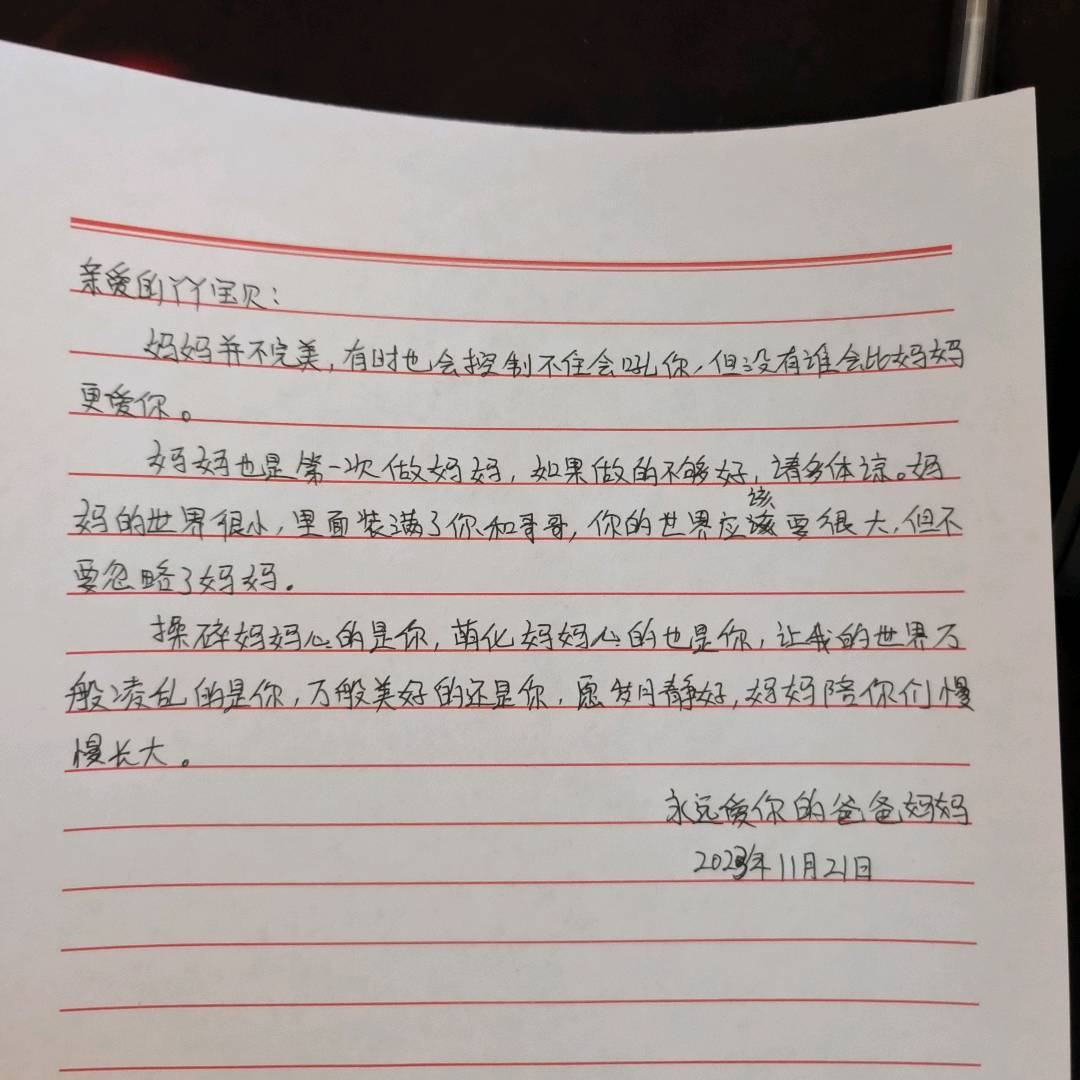 亲爱的丫丫宝贝：
妈妈并不完美，有时也会控制不住会吼你，但没有谁会比妈妈
更爱你。
妈妈也是第一次做妈妈，如果做的不够好，请多体谅。妈
妈的世界很小，里面装满了你和哥哥，你的世界应该要很大，但不
要忽略了妈妈。
操碎妈妈心的是你，萌化妈妈心的也是你，让我的世界万
般凌乱的是你，万般美好的还是你，愿岁月静好，妈妈陪你们慢
慢长大。
永远爱你的爸爸妈妈
2023年11月21日